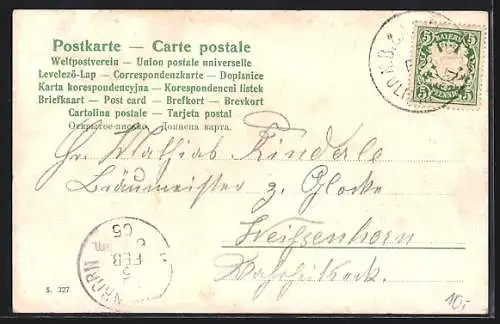 Postkarte – Carte postale
Weltpostverein – Union postale universelle
Levelező-Lap – Correspondenzkarte – Dopisnice
Karta korespondencyjna – Korespondencni listek
Briefkaart – Post card – Brefkort – Brevkort
Cartolina postale – Tarjeta postal
Открытое письмо.
5 BAYERN 5
5 PFENNIG 5
Hr. Mathias Kinderle
Bräumeister z. Glocke
Weißenhorn
FEB.
05
S. 327
10.-